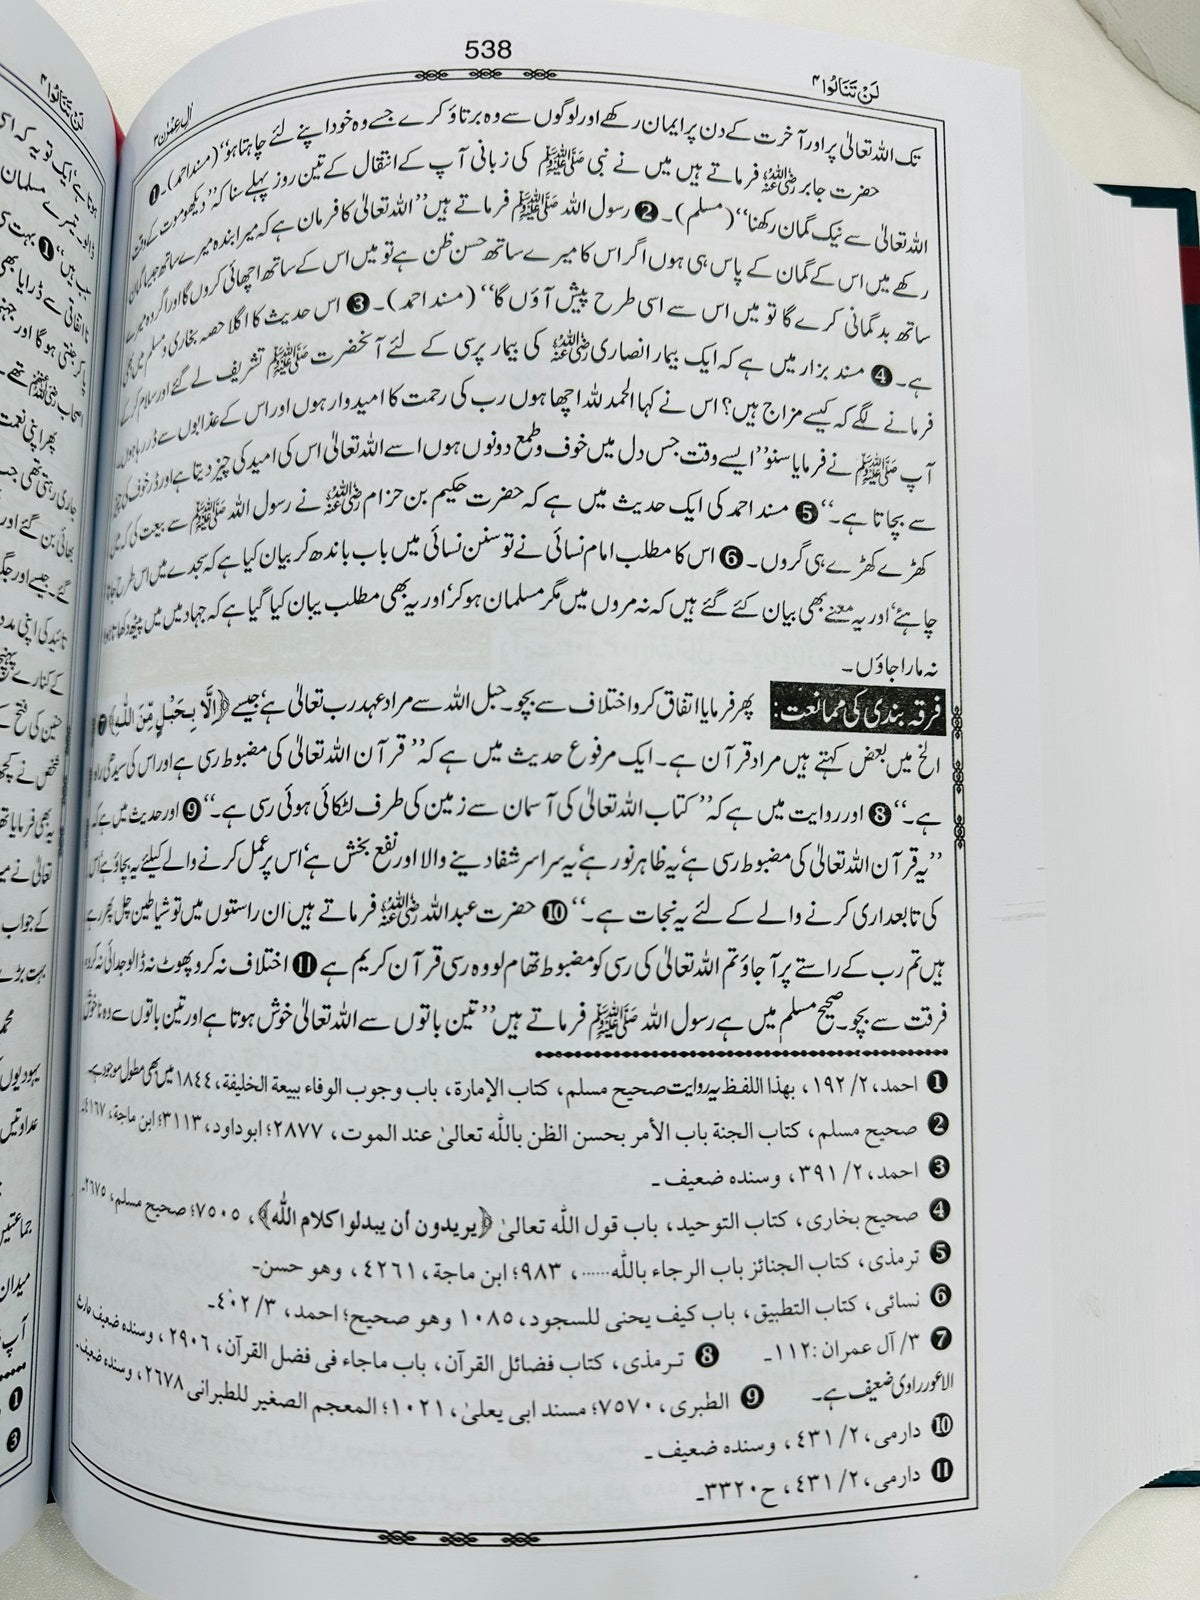 538
لَنْ تَنَالُوا ۴
اٰلِ عِمْرٰن ۳
تک اللہ تعالیٰ پر اور آخرت کے دن پر ایمان رکھے اور لوگوں سے وہ برتاؤ کرے جسے وہ خود اپنے لئے چاہتا ہو‘‘ (مسند احمد)۔ ❶
حضرت جابر رضی اللہ عنہ فرماتے ہیں میں نے نبی ﷺ کی زبانی آپ کے انتقال کے تین روز پہلے سنا کہ ’’دیکھو موت کے وقت
اللہ تعالیٰ سے نیک گمان رکھنا‘‘ (مسلم)۔ ❷ رسول اللہ ﷺ فرماتے ہیں ’’اللہ تعالیٰ کا فرمان ہے کہ میرا بندہ میرے ساتھ جیسا گمان
رکھے میں اس کے گمان کے پاس ہی ہوں اگر اس کا میرے ساتھ حسن ظن ہے تو میں اس کے ساتھ اچھائی کروں گا اور اگر وہ میرے
ساتھ بدگمانی کرے گا تو میں اس سے اسی طرح پیش آؤں گا‘‘ (مسند احمد)۔ ❸ اس حدیث کا اگلا حصہ بخاری و مسلم میں بھی
ہے۔ ❹ مسند بزار میں ہے کہ ایک بیمار انصاری رضی اللہ عنہ کی بیمار پرسی کے لئے آنحضرت ﷺ تشریف لے گئے اور سلام کر کے
فرمانے لگے کہ کیسے مزاج ہیں؟ اس نے کہا الحمد للہ اچھا ہوں رب کی رحمت کا امیدوار ہوں اور اس کے عذابوں سے ڈر رہا ہوں۔
آپ ﷺ نے فرمایا سنو ’’ایسے وقت جس دل میں خوف و طمع دونوں ہوں اسے اللہ تعالیٰ اس کی امید کی چیز دیتا ہے اور ڈر خوف کی چیز
سے بچاتا ہے۔‘‘ ❺ مسند احمد کی ایک حدیث میں ہے کہ حضرت حکیم بن حزام رضی اللہ عنہ نے رسول اللہ ﷺ سے بیعت کی کہ میں
کھڑے کھڑے ہی گروں۔ ❻ اس کا مطلب امام نسائی نے تو سنن نسائی میں باب باندھ کر بیان کیا ہے کہ سجدے میں اس طرح جانا
چاہئے‘ اور یہ معنے بھی بیان کئے گئے ہیں کہ نہ مروں میں مگر مسلمان ہو کر‘ اور یہ بھی مطلب بیان کیا گیا ہے کہ جہاد میں میں پیٹھ دکھاتا ہوا
نہ مارا جاؤں۔
فرقہ بندی کی ممانعت: پھر فرمایا اتفاق کرو اختلاف سے بچو۔ حبل اللہ سے مراد عہد رب تعالیٰ ہے‘ جیسے ﴿اِلَّا بِحَبْلٍ مِّنَ اللّٰهِ﴾ ❼
الخ میں بعض کہتے ہیں مراد قرآن ہے۔ ایک مرفوع حدیث میں ہے کہ ’’قرآن اللہ تعالیٰ کی مضبوط رسی ہے اور اس کی سیدھی راہ
ہے۔‘‘ ❽ اور روایت میں ہے کہ ’’کتاب اللہ تعالیٰ کی آسمان سے زمین کی طرف لٹکائی ہوئی رسی ہے۔‘‘ ❾ اور حدیث میں ہے کہ
’’یہ قرآن اللہ تعالیٰ کی مضبوط رسی ہے‘ یہ ظاہر نور ہے‘ یہ سراسر شفا دینے والا اور نفع بخش ہے‘ اس پر عمل کرنے والے کیلئے یہ بچاؤ ہے‘ اس
کی تابعداری کرنے والے کے لئے یہ نجات ہے۔‘‘ ❿ حضرت عبداللہ رضی اللہ عنہ فرماتے ہیں‘ ان راستوں میں تو شیاطین چل پھر رہے
ہیں تم رب کے راستے پر آ جاؤ تم اللہ تعالیٰ کی رسی کو مضبوط تھام لو وہ رسی قرآن کریم ہے ⓫ اختلاف نہ کرو پھوٹ نہ ڈالو جدائی نہ کرو
فرقت سے بچو۔ صحیح مسلم میں ہے رسول اللہ ﷺ فرماتے ہیں ’’تین باتوں سے اللہ تعالیٰ خوش ہوتا ہے اور تین باتوں سے وہ ناخوش
❶ احمد، ۲/ ۱۹۲، بهذا اللفظ یہ روایت صحیح مسلم، كتاب الإمارة، باب وجوب الوفاء ببيعة الخليفة، ۱۸٤٤ میں بھی مطول موجود ہے۔
❷ صحیح مسلم، کتاب الجنة باب الأمر بحسن الظن بالله تعالیٰ عند الموت، ۲۸۷۷؛ ابوداود، ۳۱۱۳؛ ابن ماجة، ٤١٦٧۔
❸ احمد، ۲/ ۳۹۱، وسنده ضعيف۔
❹ صحیح بخاری، کتاب التوحید، باب قول الله تعالیٰ ﴿يريدون أن يبدلوا كلام الله﴾، ۷۵۰۵؛ صحیح مسلم، ۲٦۷۵۔
❺ ترمذی، کتاب الجنائز باب الرجاء بالله......، ۹۸۳؛ ابن ماجة، ٤٢٦١، وهو حسن۔
❻ نسائی، کتاب التطبیق، باب کیف یحنی للسجود، ۱۰۸۵ وهو صحیح؛ احمد، ۳/ ٤٠٢۔
❼ ۳/ آل عمران: ۱۱۲۔ ❽ ترمذی، کتاب فضائل القرآن، باب ماجاء فی فضل القرآن، ۲۹۰٦، وسنده ضعیف حارث
الاعور راوی ضعیف ہے۔ ❾ الطبری، ۷۵۷۰؛ مسند ابی یعلیٰ، ۱۰۲۱؛ المعجم الصغیر للطبرانی ۲٦۷۸، وسنده ضعیف۔
❿ دارمی، ۲/ ٤٣١، وسنده ضعیف۔
⓫ دارمی، ۲/ ٤٣١، ح ۳۳۲۰۔